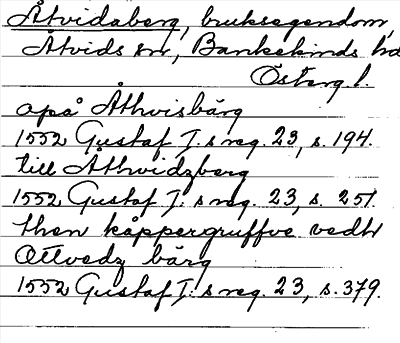 Åtvidaberg, bruksegendom,
Åtvids sn, Bankekinds hd
Österg l.
opå Åthvisbärg
1552 Gustaf I:s reg. 23, s. 194.
till Åthvidzberg
1552 Gustaf I:s reg. 23, s. 251.
then kåppergruffve vedh
Ottvedz bärg
1552 Gustaf I:s reg. 23, s. 379.